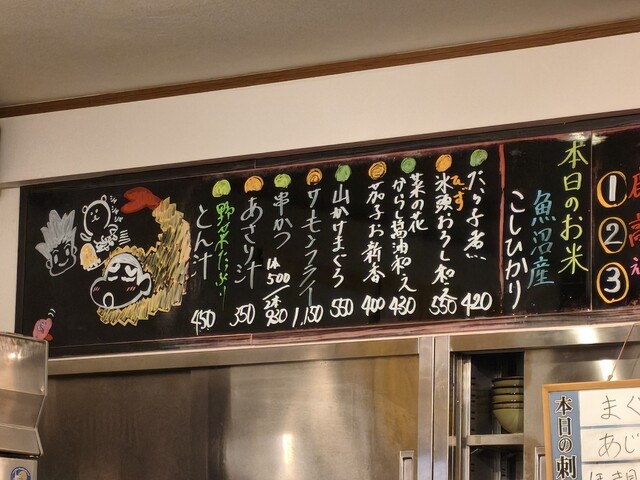 ①
②
③
本日のお米
魚沼産
こしひかり
たら子煮
420
氷頭おろし和え
ひず
550
菜の花
からし醤油和え
430
茄子お新香
400
山かけまぐろ
550
サーモンフライ
1,150
串かつ
1本500/2本930
あさり汁
350
野菜たっぷり
とん汁
450
本日の刺
まぐ
あじ